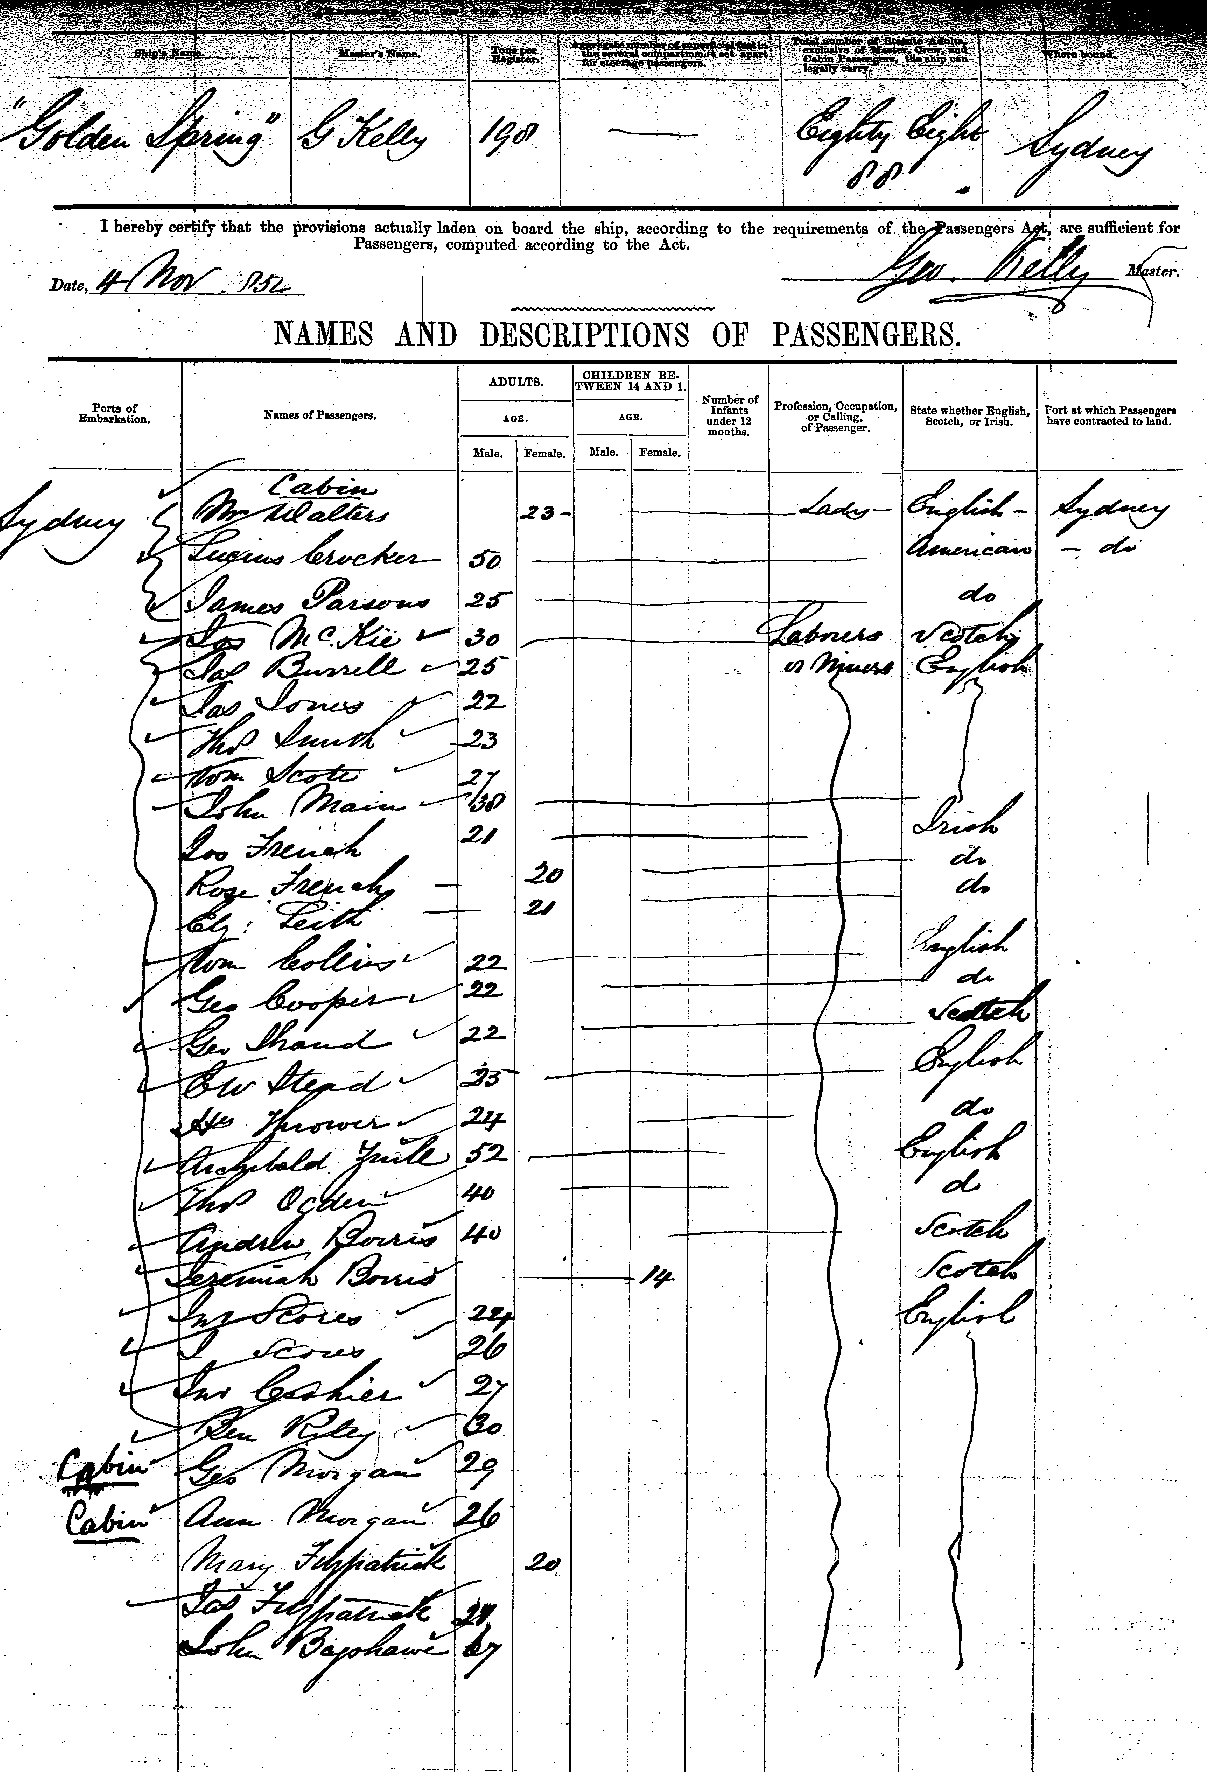 Ship's Name.
Master's Name.
Tons per Register.
Aggregate number of superficial feet in the several compartments set apart for steerage passengers.
Total number of Statute Adults, exclusive of Master, Crew, and Cabin Passengers, the ship can legally carry.
Where bound.
"Golden Spring" G Kelly 198 — Eighty Eight Sydney
88
I hereby certify that the provisions actually laden on board the ship, according to the requirements of the Passengers Act, are sufficient for
Passengers, computed according to the Act.
Geo. Kelly Master.
Date, 4 Nov 1852
NAMES AND DESCRIPTIONS OF PASSENGERS.
Ports of Embarkation.
Names of Passengers.
ADULTS.
AGE.
Male. Female.
CHILDREN BETWEEN 14 AND 1.
AGE.
Male. Female.
Number of Infants under 12 months.
Profession, Occupation, or Calling. of Passenger.
State whether English, Scotch, or Irish.
Port at which Passengers have contracted to land.
Cabin
Sydney Walters 23 Lady English Sydney
Lucius Crocker 50 American do
James Parsons 25 do
Jas McKie 30 Labourers Scotch
Jas Burrell 25 or Miners English
Jas Jones 22
Thos Smith 23
Wm Scote 27
John Main 38
Jos French 21 Irish
Rose French 20 do
Elz: Leith 21 do
Wm Collins 22 English
Geo Cooper 22 do
Geo Shand 22 Scotch
EW Stead 25 English
Hy Thrower 24 do
Archibald Yuill 52 English
Thos Ogden 40 do
Andrew Borris 40 Scotch
Jeremiah Borris 14 Scotch
Jno Scores 24 English
J Scores 26
Jno Cashier 27
Ben Riley 30
Cabin Geo Morgan 29
Cabin Ann Morgan 26
Mary Fitzpatrick 20
Jas Fitzpatrick
John Bagshawe